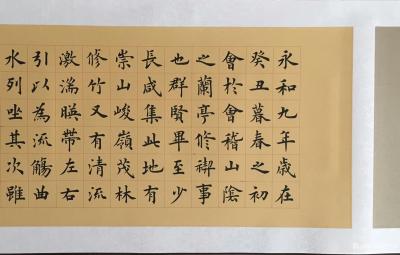 永和九年歲在
癸丑暮春之初
會於會稽山陰
之蘭亭修禊事
也群賢畢至少
長咸集此地有
崇山峻嶺茂林
修竹又有清流
激湍暎帶左右
引以為流觴曲
水列坐其次雖